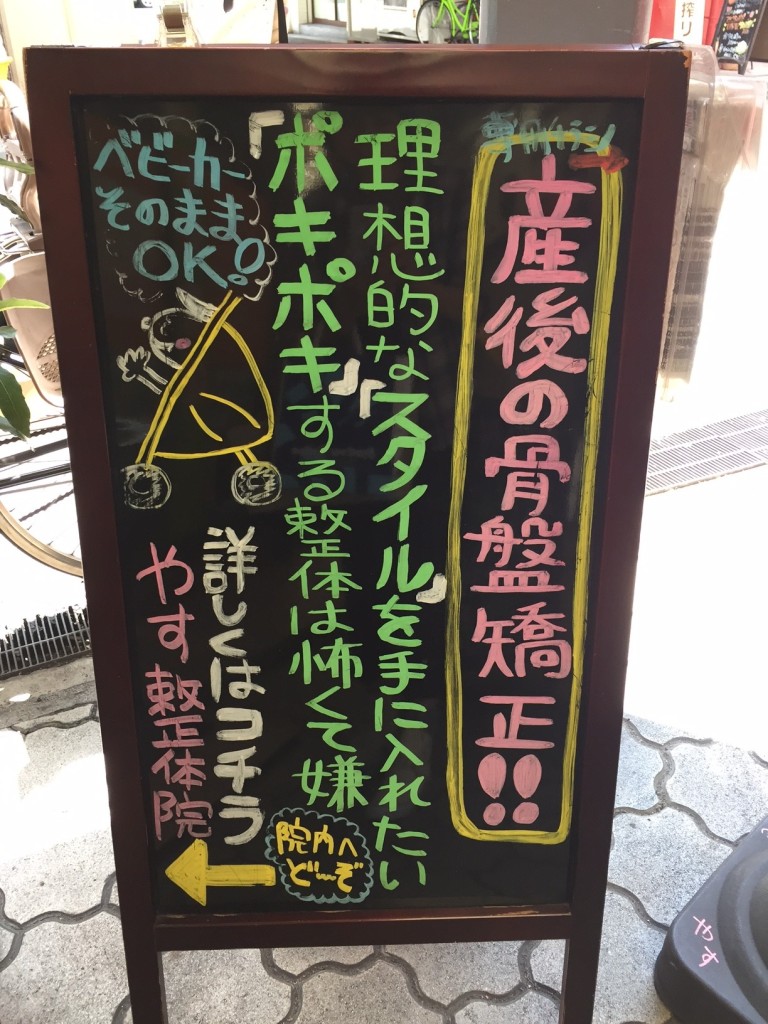 産後の骨盤矯正!!
理想的な「スタイル」を手に入れたい
「ポキポキ」する整体は怖くて嫌
ベビーカー
そのまま
OK!
詳しくはコチラ
やす整体院
院内へ
どーぞ
やす